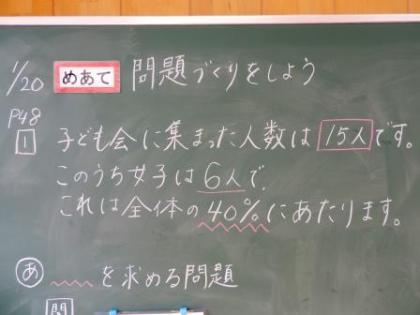 1/20 めあて 問題づくりをしよう
P48
1 子ども会に集まった人数は15人です。
このうち女子は6人で、
これは全体の40%にあたります。
あ 〰〰を求める問題
問